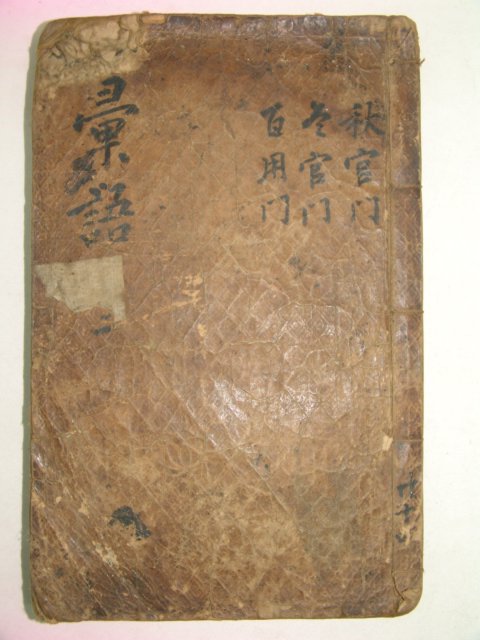 彙語
二
秋官门
冬官门
百用门